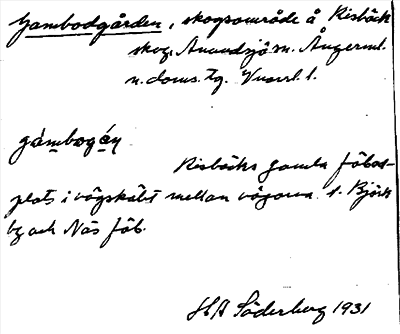 Gambodgården, skogsområde å Risbäck
skog, Anundsjö sn. Ångerml.
n. doms. tg. Vuxrl 1.
gámbogá̱ṇ
Risbäcks gamla fäbod-
plats i vägskälet mellan vägarna t. Björk
by och Näs fäb.
H A Söderberg 1931